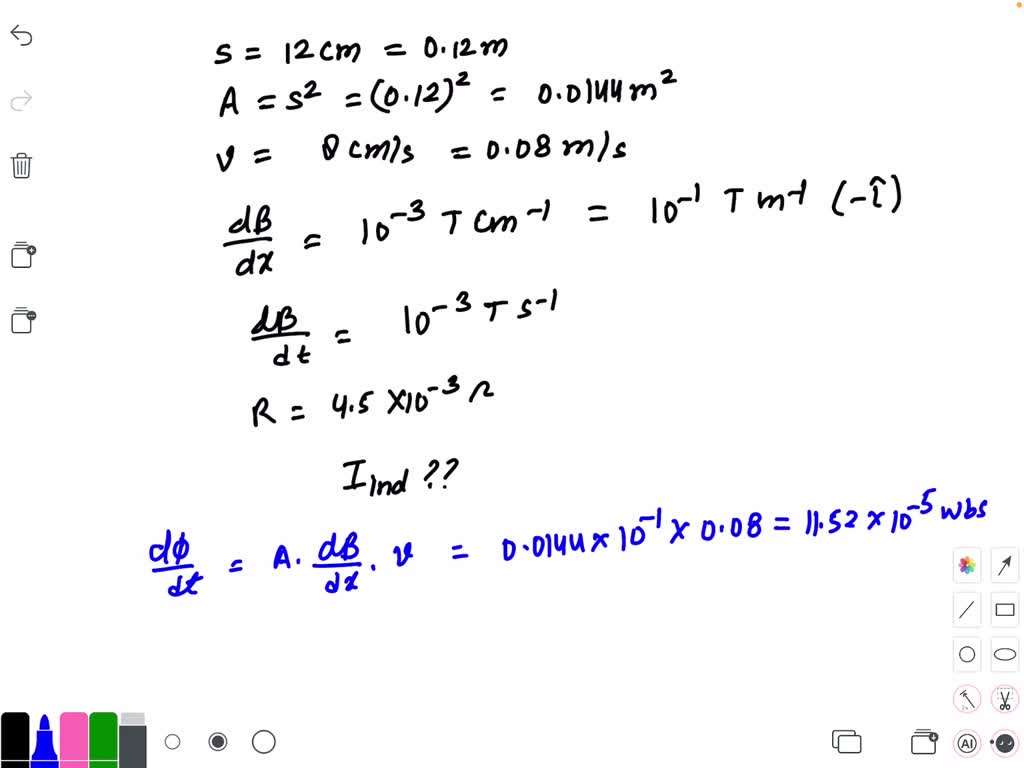 s = 12 cm = 0.12 m
A = s² = (0.12)² = 0.0144 m²
v = 8 cm/s = 0.08 m/s
dB/dx = 10⁻³ T cm⁻¹ = 10⁻¹ T m⁻¹ (-î)
dB/dt = 10⁻³ T s⁻¹
R = 4.5 × 10⁻³ Ω
I ind ??
dϕ/dt = A. dB/dx . v = 0.0144 × 10⁻¹ × 0.08 = 11.52 × 10⁻⁵ wbs
AI